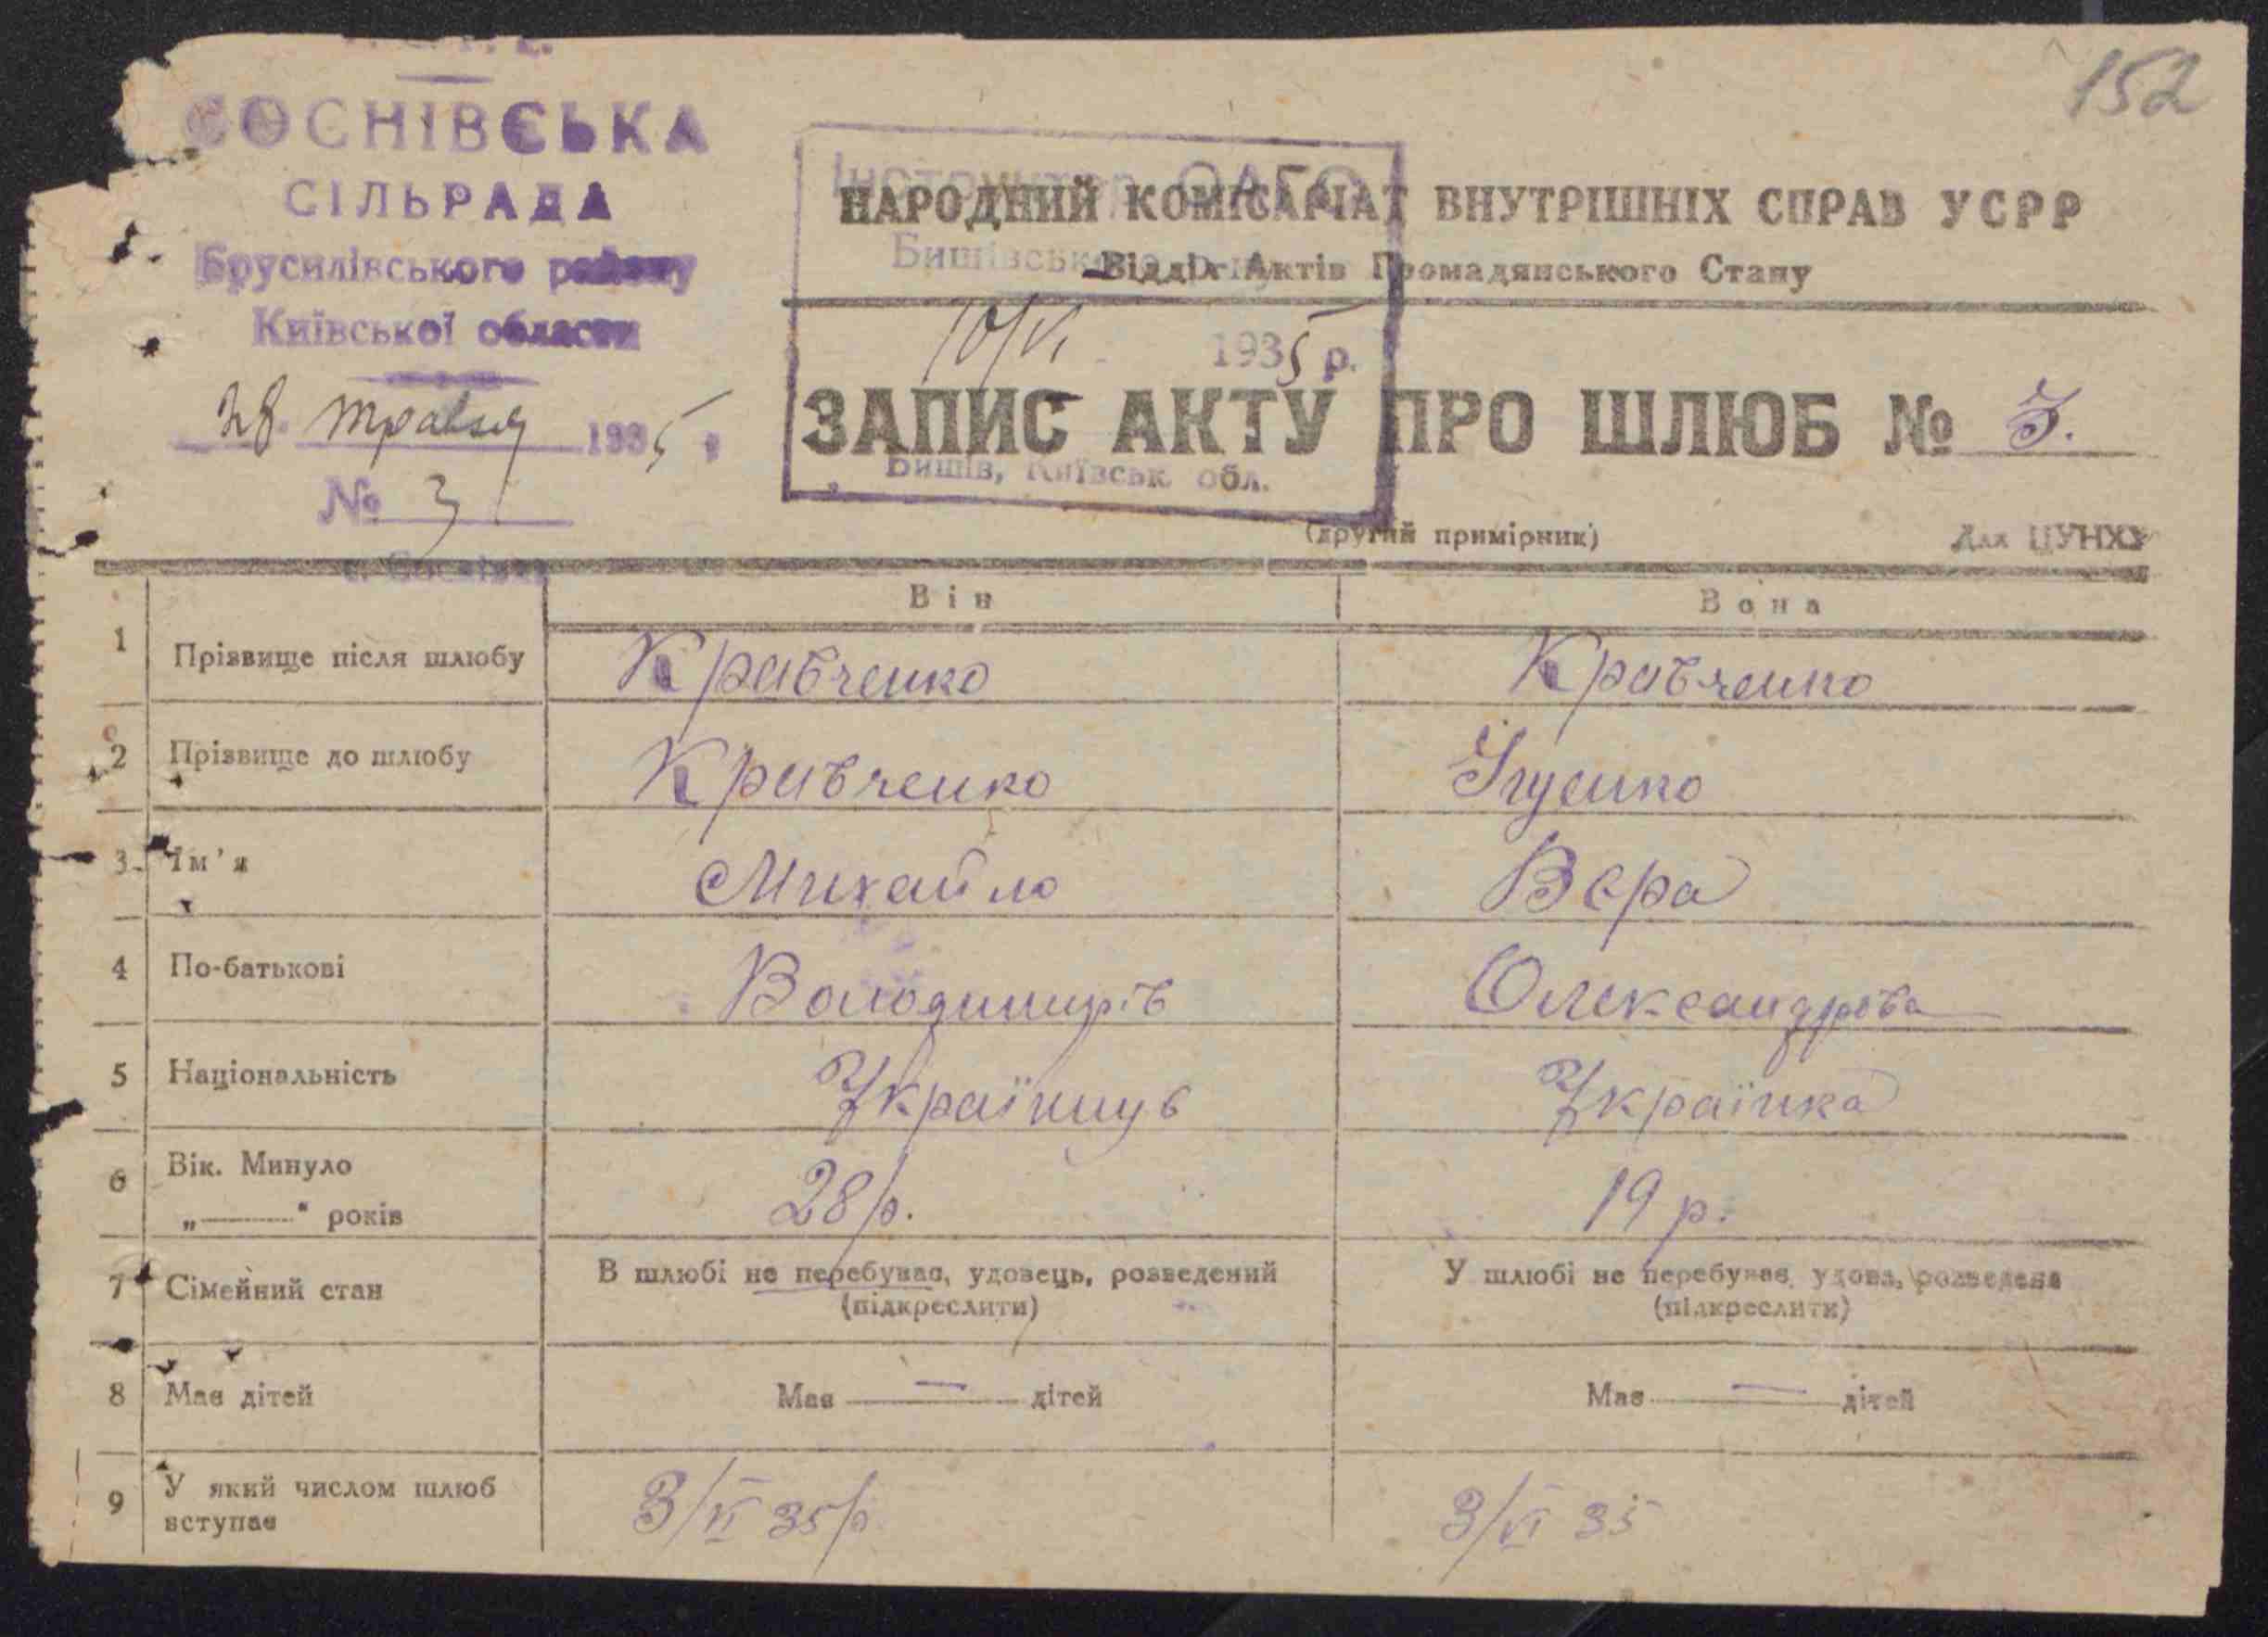 152
СОСНІВСЬКА
СІЛЬРАДА
Брусилівського району
Київської области
28 травня 1935
№ 3
Інструктор ОАГС
Бишівськ
10/VI 1935 р.
Бишів, Київськ. обл.
НАРОДНИЙ КОМІСАРІАТ ВНУТРІШНІХ СПРАВ УСРР
Відділ Актів Громадянського Стану
ЗАПИС АКТУ ПРО ШЛЮБ № 3.
(другий примірник) Для ЦУНХУ
Він Вона
1 Прізвище після шлюбу Кравченко Кравченко
2 Прізвище до шлюбу Кравченко
3 Ім'я Михайло Вєра
4 По-батькові Володимирів Олександрова
5 Національність Українцув Українка
6 Вік. Минуло
„———" років 28 р. 19 р.
7 Сімейний стан В шлюбі не перебуває, удовець, розведений У шлюбі не перебуває, удова, розведена
(підкреслити) (підкреслити)
8 Має дітей Має — дітей Має — дітей
9 У який числом шлюб
вступає 3/VI 35 р 3/VI 35